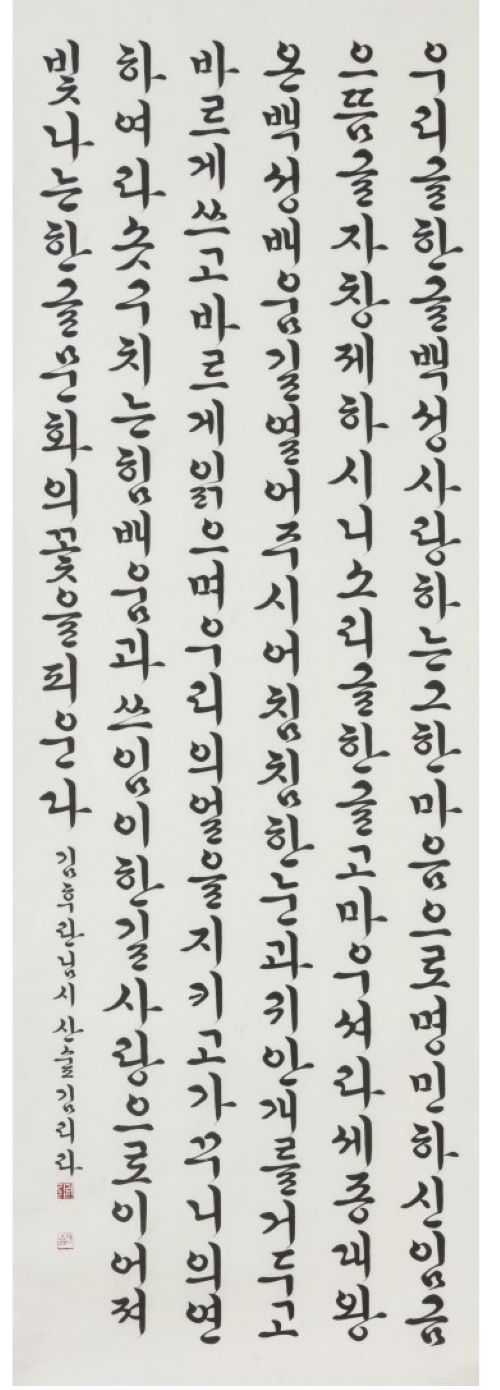 우리글한글백성사랑하는그한마음으로명민하신임금
으뜸글자창제하시니소리글한글고마우셔라세종대왕
온백성배움길열어주시어침침한눈과귀안개를거두고
바르게쓰고바르게읽으며우리의얼을지키고가꾸니의연
하여라솟구치는힘배움과쓰임이한길사랑으로이어져
빛나는한글문화의꽃을피운다
김후란님시 산숲김리라